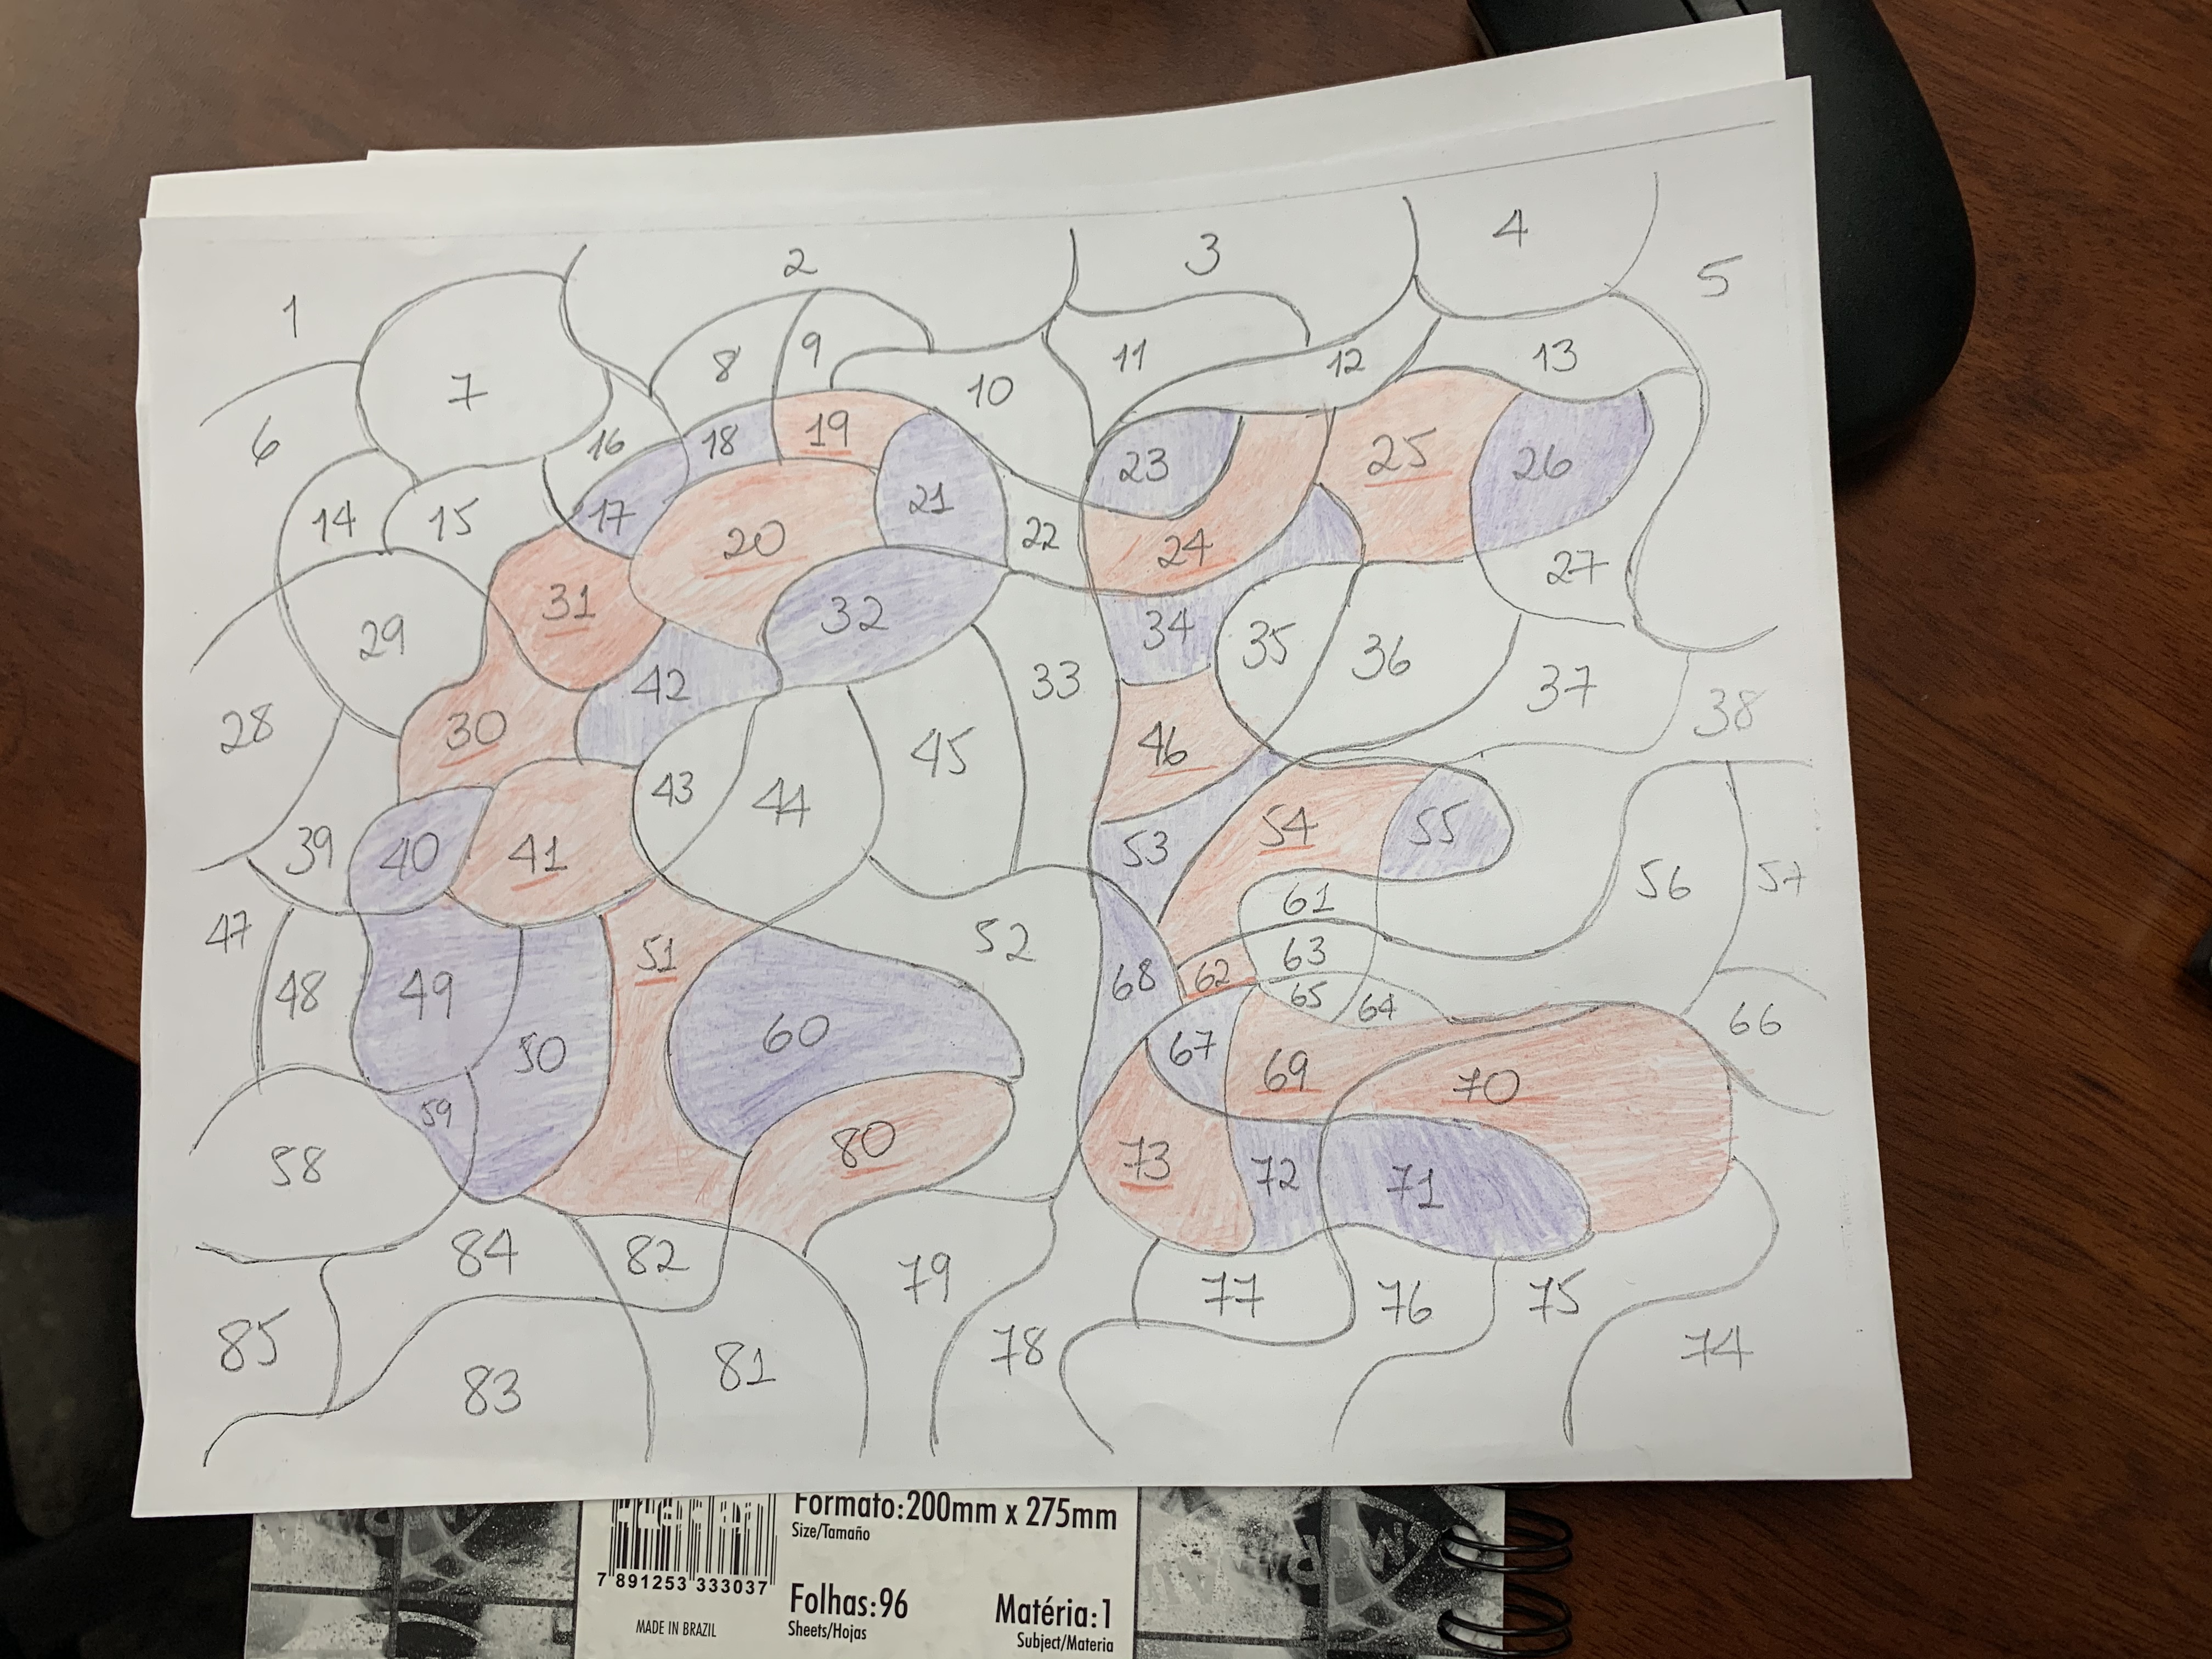 1
2
3
4
5
6
7
8
9
10
11
12
13
14
15
16
17
18
19
20
21
22
23
24
25
26
27
28
29
30
31
32
33
34
35
36
37
38
39
40
41
42
43
44
45
46
47
48
49
50
51
52
53
54
55
56
57
58
59
60
61
62
63
64
65
66
67
68
69
70
71
72
73
74
75
76
77
78
79
80
81
82
83
84
85
7891253333037
MADE IN BRAZIL
Formato:200mm x 275mm
Size/Tamaño
Folhas:96
Sheets/Hojas
Matéria:1
Subject/Materia